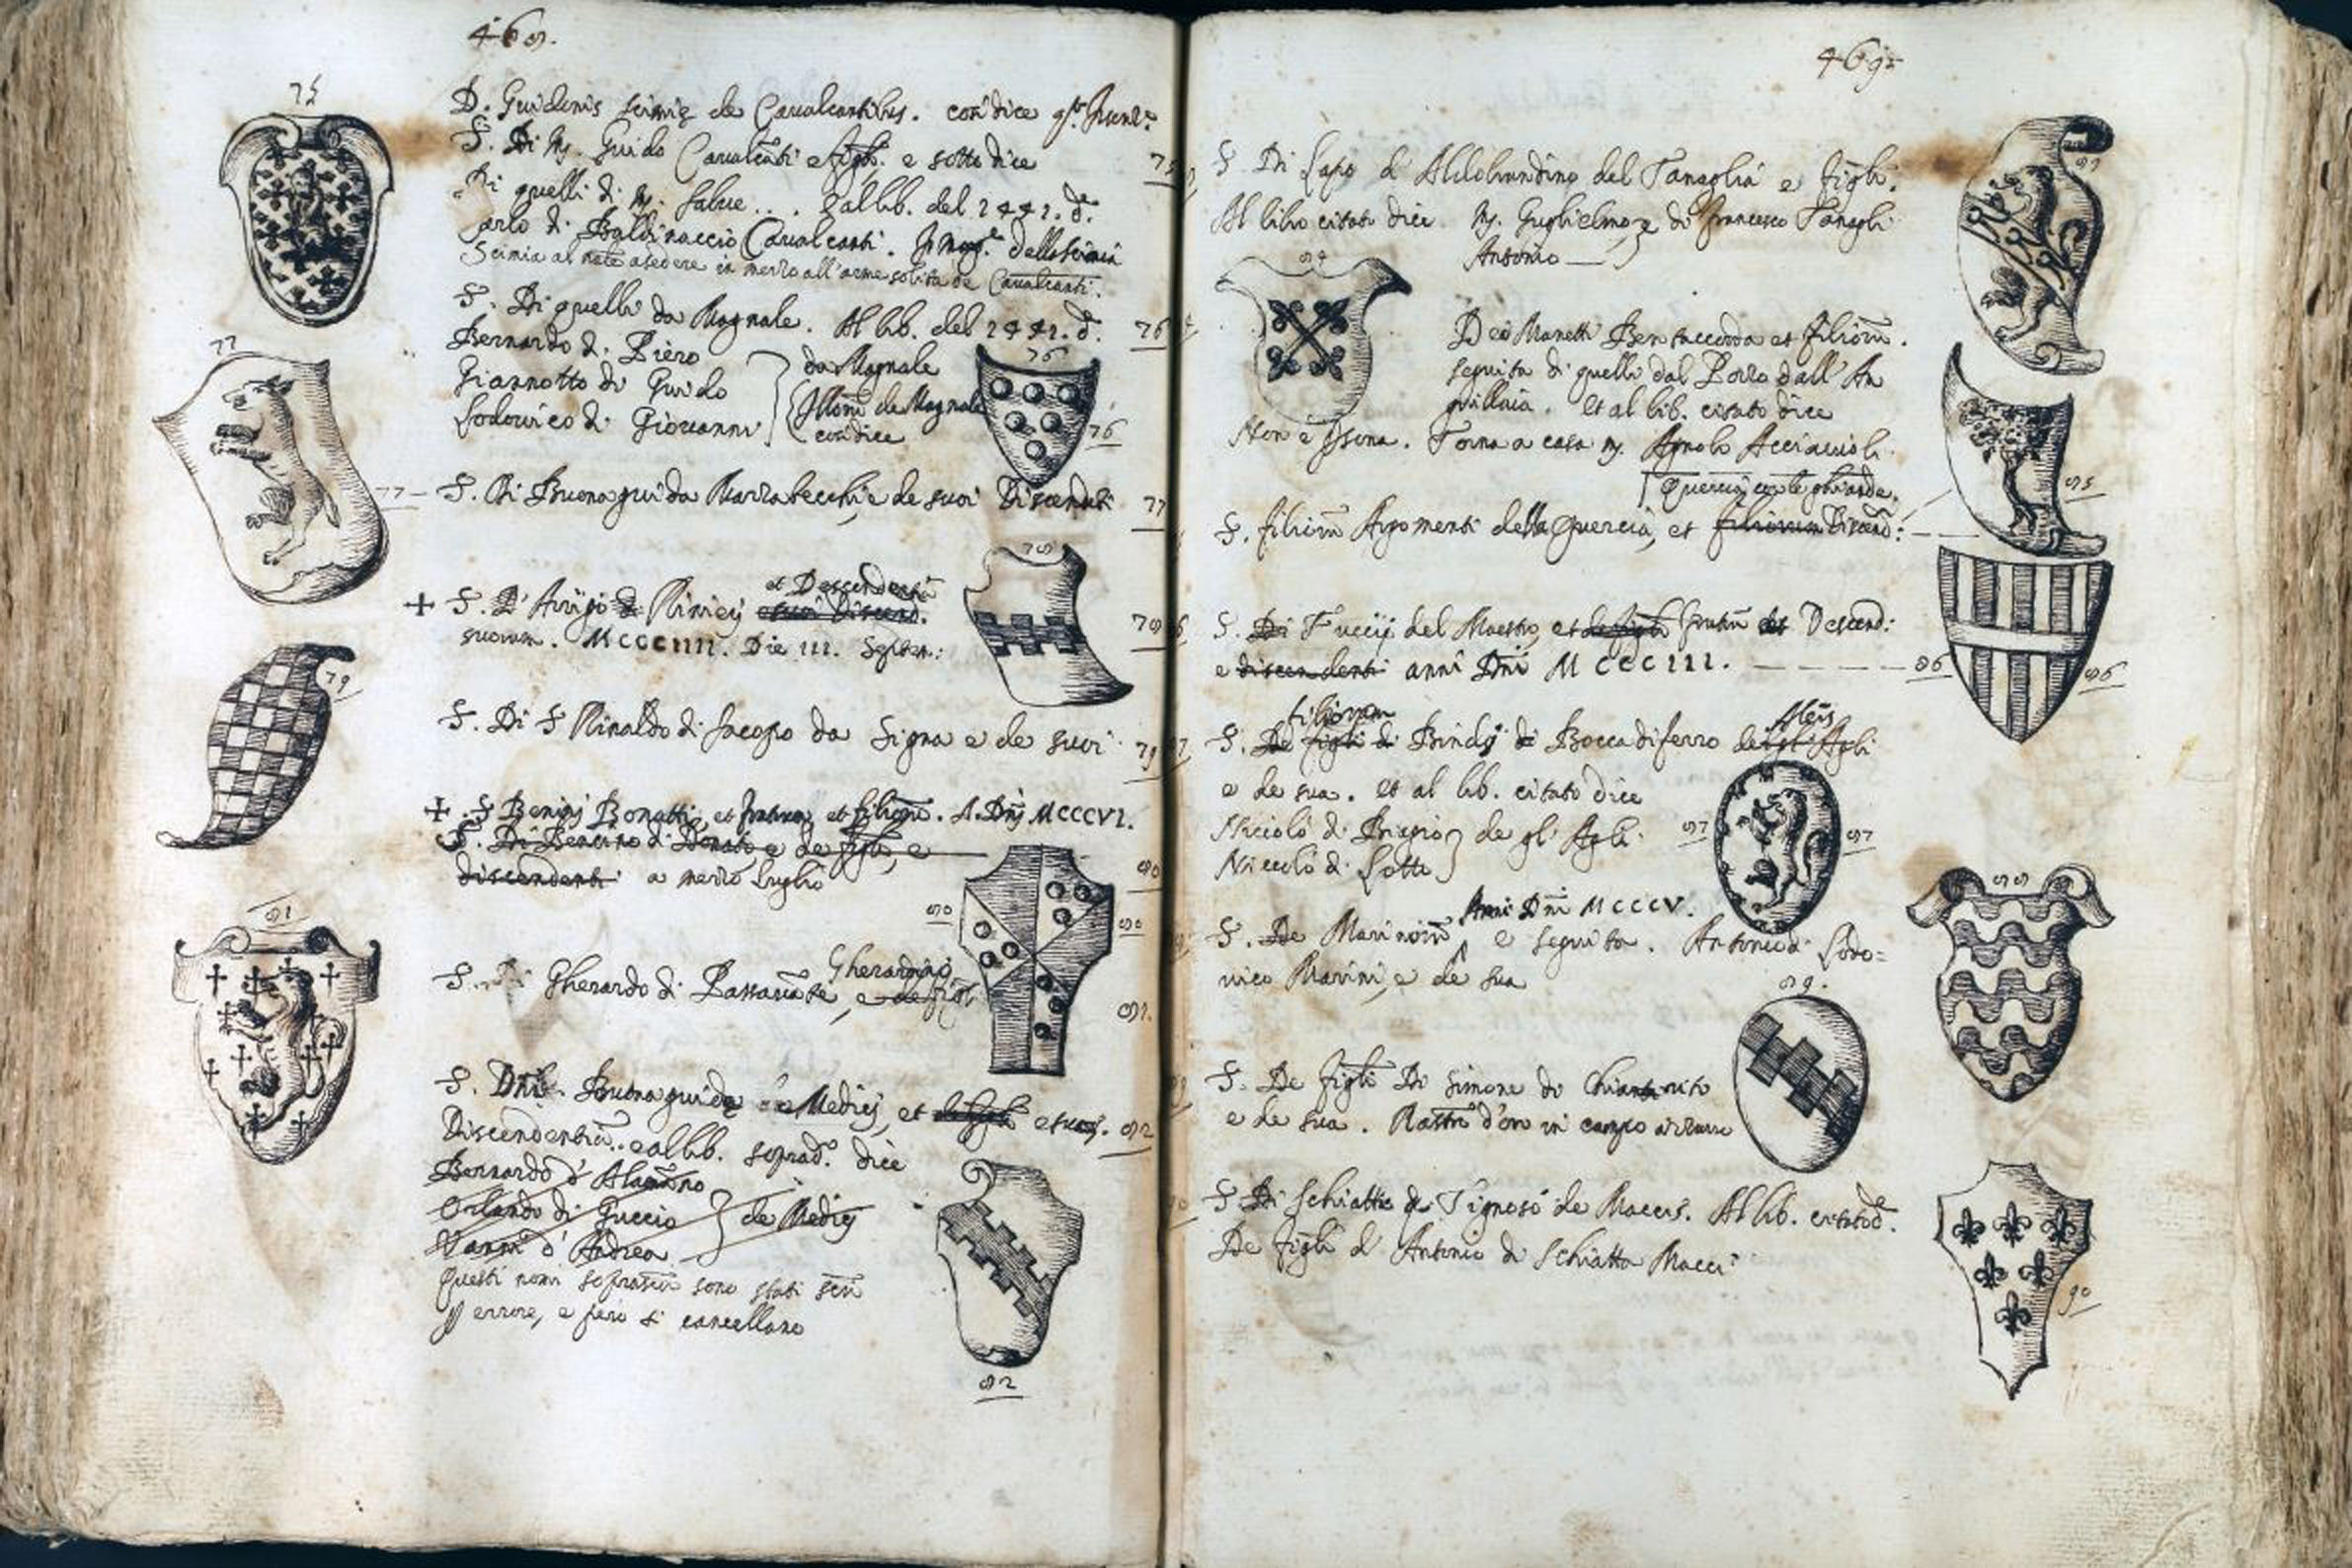 468.
75
D. Guidonis scimię de Caualcantibus. così dice
S. Di M. Guido Caualcāti e figli. e sotto dice
Di quelli di M. Salue... al lib. del 1441. d.
Carlo di Baldinaccio Caualcanti. della scimia
Scimia al nāle a sedere in mezzo all'arme solita de Caualcanti.
75
S. Di quelli da Magnale. Al lib. del 1441. d.
76
Bernardo di Piero
Giannotto di Guido
Lodouico di Giouanni
da Magnale
da Magnale
così dice
76
76
77
77
S. Di Buonaguida Marrabecchi, e de suoi Discendēti
77
+ S. D'Arrigo di Rinieri e suoi Discend. et Descendentiū
suorum. MCCCIIII. Die III. Septem:
78
78
79
S. Di S Rinaldo di Jacopo da Signa e de suoi
79
+ S Benini Bonatti, et fratrum, et filiorū. A. Dnj MCCCVI.
S. Di Bencino di Donato e de figli, e
discendenti a mezzo luglio
80
80
80
81
S. Di Gherardo di Passauāte, e de figli Gherardini
81.
S. Dnī Buonaguidę de Medicj, et de figli et suoꝝ.
82
Discendentiū. e al lib. soprad.º dice
Bernardo d'Alamāno
Orlando di Guccio
Vanni d'Andrea
de Medicj
Questi nomi soprascri sono stati scri
ꝑ errore, e però si cancellano
82
469.
S Di Lapo d'Aldobrandino del Tanaglia e figli.
Al libro citato dice M. Guglielmo e di Francesco Tanagli
Antonio
83
84
Deo Manetti Bentaccorda et filiorū.
seguita di quelli dal Pozzo dall'An
guillaia. et al lib. citato dice
Non è Torna a casa M. Agnolo Acciaiuoli
Quercia con le ghiande.
85
S. filiorū Argomenti della Quercia, et filiorum Discend:
S. Di Tuccij del Maestro, et de figli fratrū et Descend:
e discendenti anni Dnī MCCCIII.
86
86
S. De figli di filiorum Bindj di Boccadiferro de gl'Agli Aleis
e de sua. et al lib. citato dice
Niccolò di Biagio
Niccolò di Lotto
de gl'Agli
87
87
S. De Marinorū Anni Dnī MCCCV. e seguita. Antonio di Lodo=
uico Marini, e de sua
88
89.
S. De figli Di Simone di Chiarito
e de sua. Rastro d'oro in campo azzurro
S. Di Schiatta di Tignoso de Maccis. Al lib. citato d.
De figli d'Antonio di Schiatta Macci
90